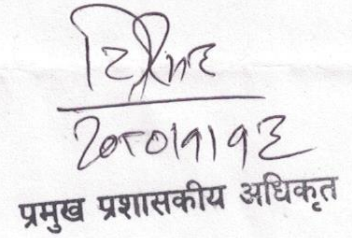 २०८०।१।१६
प्रमुख प्रशासकीय अधिकृत